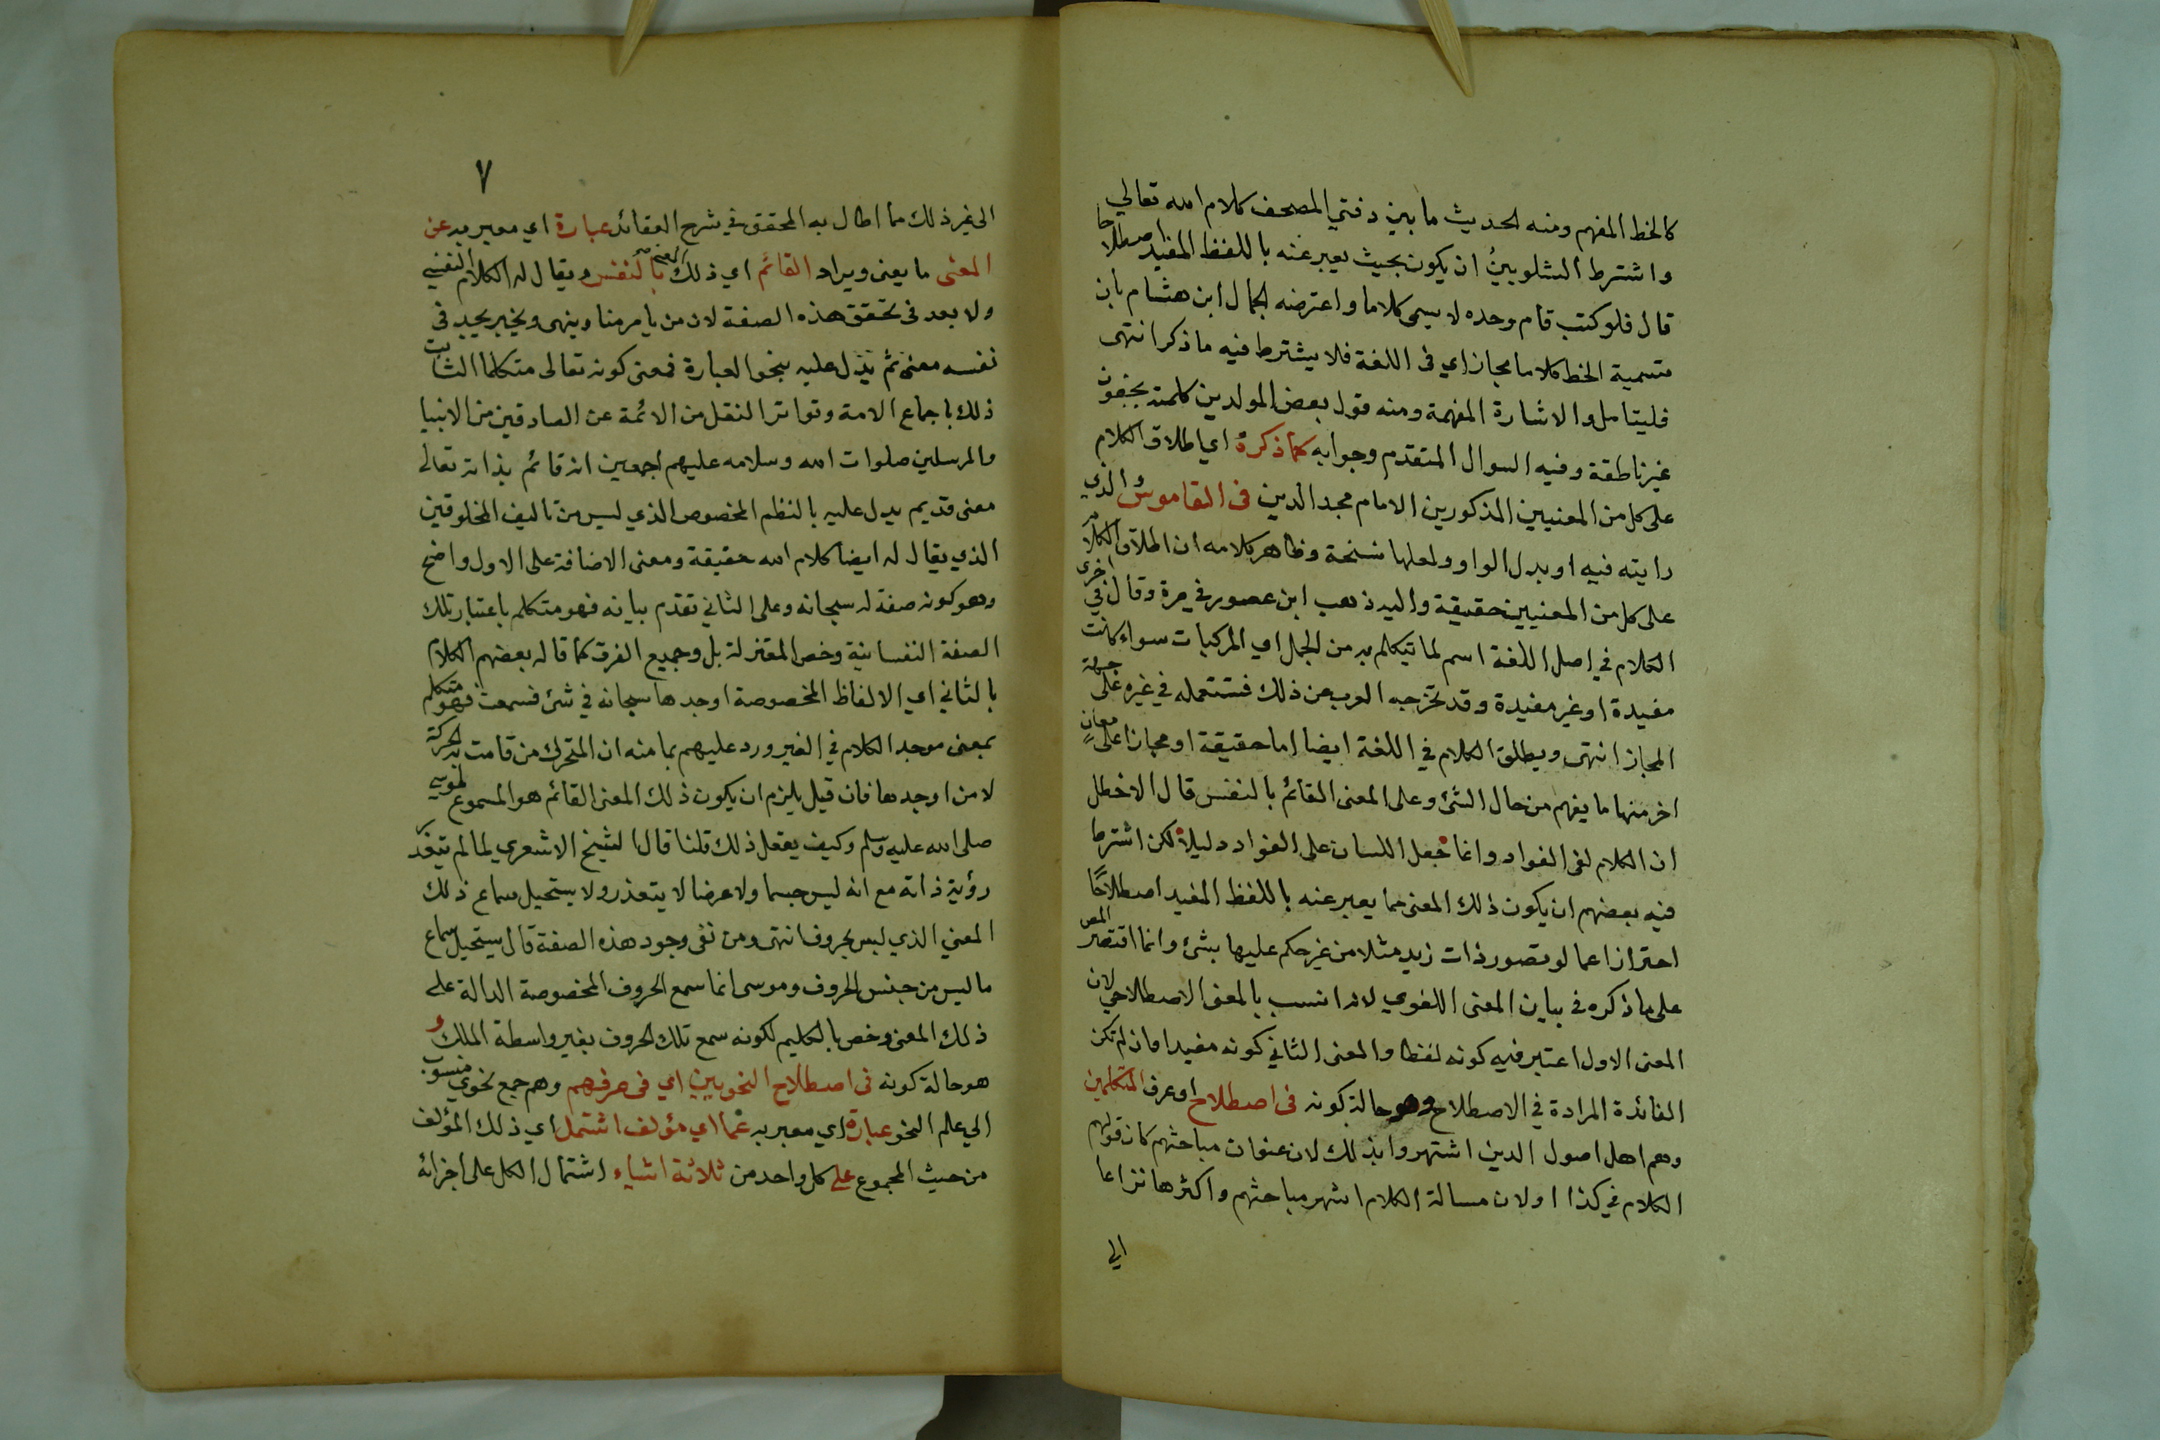 كالخط المفهم ومنه الحديث ما بين دفتي المصحف كلام الله تعالي
واشترط الشلوبينُ ان يكون بحيث يعبر عنه باللفظ المفيد اصطلاحا
قال فلو كتب قام وحده لا يسمى كلاما واعترضه الجمال ابن هشام بان
تسمية الخط كلاما مجاز اي في اللغة فلا يشترط فيه ما ذكر انتهى
فليتامل والاشارة المفهمة ومنه قول بعض المولدين كلمته بجفون
غير ناطقة وفيه السوال المتقدم وجوابه كما ذكرهُ اي اطلاق الكلام
على كل من المعنيين المذكورين الامام مجد الدين في القاموس و الذي
رايته فيه او بدل الواو ولعلها نسخة وظاهر كلامه ان اطلاق الكلام
على كل من المعنيين حقيقة واليه ذهب ابن عصور في مرة وقال في اخرى
الكلام في اصل اللغة اسم لما يتكلم به من الجمل اي المركبات سواء كانت
مفيدة او غير مفيدة وقد تخرجه العرب عن ذلك فتستعمله في غيره على جهة
المجاز انتهى ويطلق الكلام في اللغة ايضا اما حقيقة او مجازا على معانٍ
اخر منها ما يفهم من حال الشئ وعلى المعنى القائم بالنفس قال الاخطل
ان الكلام لفى الفواد وانما جعل اللسان على الفواد دليلا لكن اشترط
فيه بعضهم ان يكون ذلك المعنى مما يعبر عنه باللفظ المفيد اصطلاحًا
احترازا عما لو تصور ذات زيد مثلا من غير حكم عليها بشئ وانما اقتصر المص
على ما ذكره في بيان المعنى اللغوي لانه انسب بالمعنى الاصطلاحي لان
المعنى الاول اعتبر فيه كونه لفظا والمعنى الثاني كونه مفيدا وان لم تكن
الفائدة المرادة في الاصطلاح وهو حالة كونه في اصطلاح او عرف المتكلمين
وهم اهل اصول الدين اشتهروا بذلك لان عنوان مباحثهم كان قولهم
الكلام في كذا او لان مسالة الكلام اشهر مباحثهم واكثرها نزاعا
الي
٧
الى غير ذلك مما اطال به المحقق في شرح العقائد عبارة اي معبر به عن
المعنى ما يعنى ويراد القائم اي ذلك المعنى بالنفس ويقال له الكلام النفسي
ولا بعد في تحقق هذه الصفة لان من يامر منا وينهى ويخبر يجد في
نفسه معنى ثم يدل عليه بنحو العبارة فمعنى كونه تعالى متكلما الثابت
ذلك باجماع الامة وتواتر النقل من الائمة عن الصادقين من الانبيا
والمرسلين صلوات الله وسلامه عليهم اجمعين انه قائم بذاته تعالى
معنى قديم يدل عليه بالنظم المخصوص الذي ليس من تاليف المخلوقين
الذي يقال له ايضا كلام الله حقيقة ومعنى الاضافة على الاول واضح
وهو كونه صفة له سبحانه وعلى الثاني تقدم بيانه فهو متكلم باعتبار تلك
الصفة النفسانية وخص المعتزلة بل وجميع الفرق كما قاله بعضهم الكلام
بالثاني اي الالفاظ المخصوصة اوجدها سبحانه في شئ فسمعت فهو متكلم
بمعنى موجد الكلام في الغير ورد عليهم بما منه ان المتحرك من قامت به الحركة
لا من اوجدها فان قيل يلزم ان يكون ذلك المعنى القائم هو المسموع لموسي
صلى الله عليه وسلم وكيف يعقل ذلك قلنا قال الشيخ الاشعري لما لم يتعذر
رؤية ذاته مع انه ليس جسما ولا عرضا لا يتعذر ولا يستحيل سماع ذلك
المعنى الذي ليس بحروف انتهى ومن نفى وجود هذه الصفة قال يستحيل سماع
ما ليس من جنس الحروف وموسى انما سمع الحروف المخصوصة الدالة على
ذلك المعنى وخص بالكليم لكونه سمع تلك الحروف بغير واسطة الملك و
هو حالة كونه في اصطلاح النحويين اي في عرفهم وهم جمع نحوي منسوب
الى علم النحو عبارة اي معبر به عما اي مؤلف اشتمل اي ذلك المؤلف
من حيث المجموع على كل واحد من ثلاثة اشياء اشتمال الكل على اجزائه